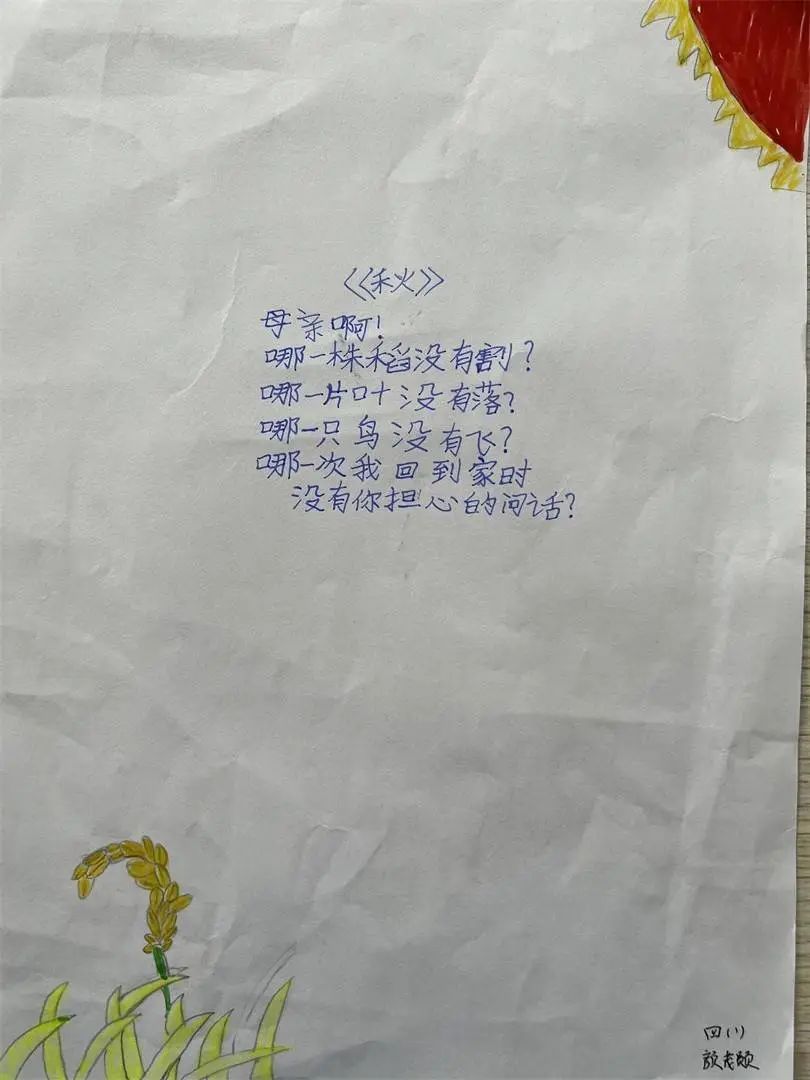 《秋》
母亲啊!
哪一株稻没有割?
哪一片叶没有落?
哪一只鸟没有飞?
哪一次我回到家时
没有你担心的问话?
四(1)